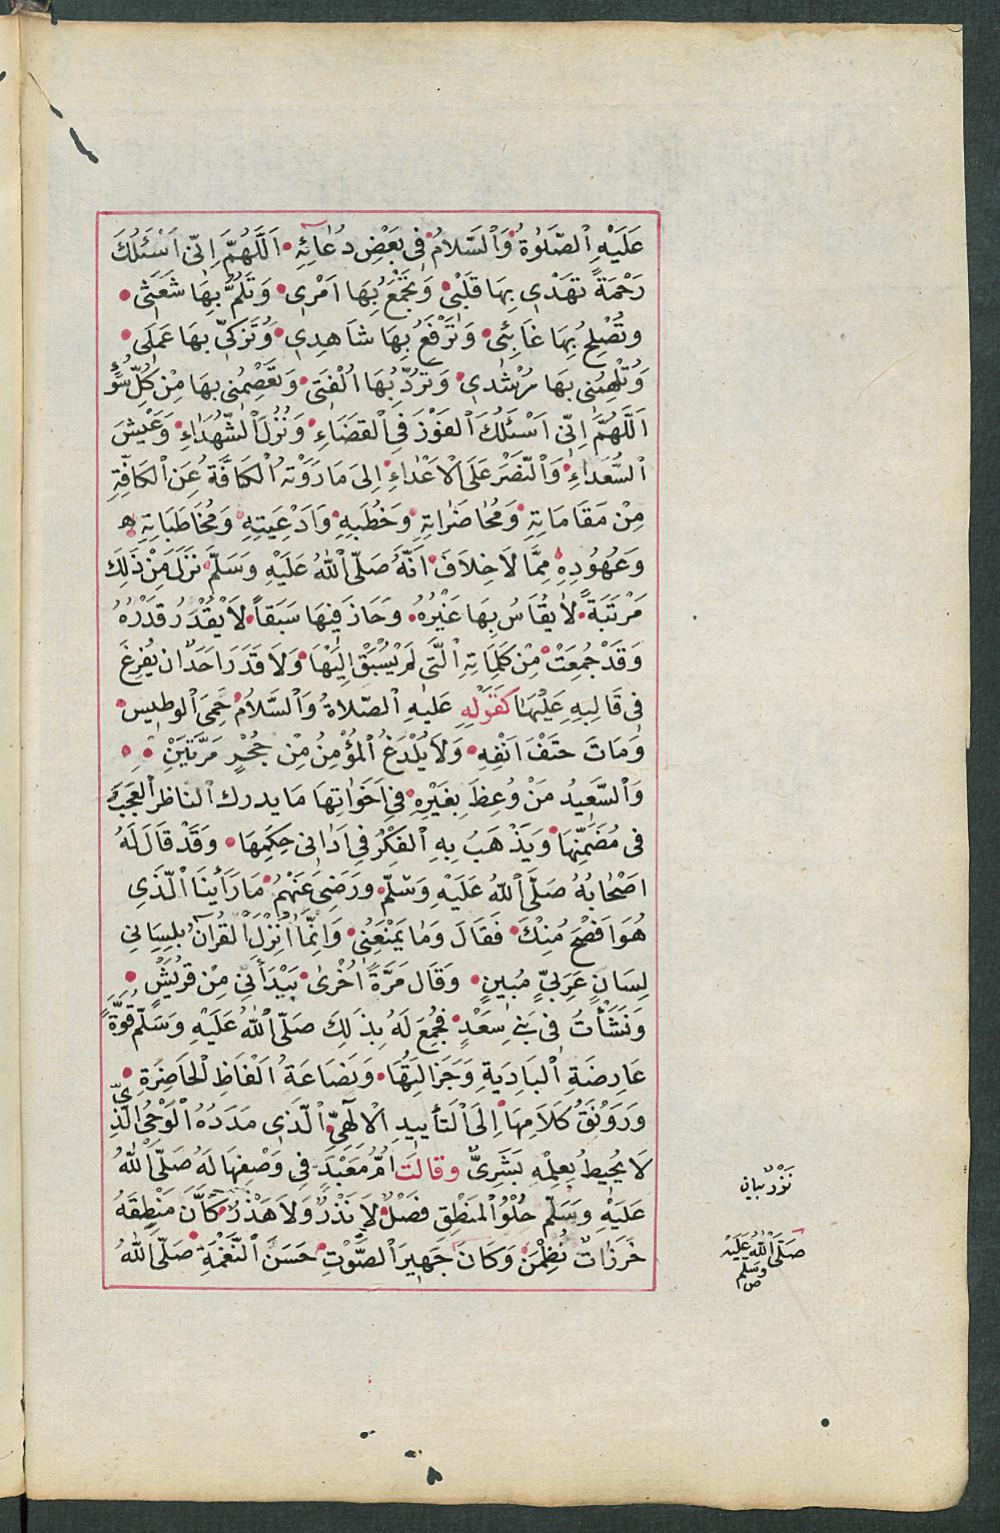 عَلَيْهِ الصَّلٰوةُ وَالسَّلَامُ فِى بَعْضِ دُعَائِهِ اَللّٰهُمَّ اِنّى اَسْئَلُكَ
رَحْمَةً تَهْدِى بِهَا قَلْبِى وَتَجْمَعُ بِهَا اَمْرِى وَتَلُمُّ بِهَا شَعَثِى
وَتُصْلِحُ بِهَا غَائِبِى وَتَرْفَعُ بِهَا شَاهِدِى وَتُزَكِّى بِهَا عَمَلِى
وَتُلْهِمُنِى بِهَا رُشْدِى وَتَرُدُّ بِهَا اُلْفَتِى وَتَعْصِمُنِى بِهَا مِنْ كُلِّ سُوءٍ
اَللّٰهُمَّ اِنّى اَسْئَلُكَ الْفَوْزَ فِى الْقَضَاءِ وَنُزُلَ الشُّهَدَاءِ وَعَيْشَ
السُّعَدَاءِ وَالنَّصْرَ عَلَى الْاَعْدَاءِ اِلَى مَا رَوَتْهُ الْكَافَّةُ عَنِ الْكَافَّةِ
مِنْ مَقَامَاتِهِ وَمُحَاضَرَاتِهِ وَخُطَبِهِ وَاَدْعِيَتِهِ وَمُخَاطَبَاتِهِ
وَعُهُودِهِ مِمَّا لَا خِلَافَ اَنَّهُ صَلَّى اللّٰهُ عَلَيْهِ وَسَلَّمَ نَزَلَ مِنْ ذَلِكَ
مَرْتَبَةً لَا يُقَاسُ بِهَا غَيْرُهُ وَحَازَ فِيهَا سَبَقاً لَا يُقْدَرُ قَدْرُهُ
وَقَدْ جُمِعَتْ مِنْ كَلِمَاتِهِ الَّتِى لَمْ يُسْبَقْ اِلَيْهَا وَلَا قَدَرَ اَحَدٌ ان يُفْرِغَ
فِى قَالِبِهِ عَلَيْهَا كَقَوْلِهِ عَلَيْهِ الصَّلَاةُ وَالسَّلَامُ حَمِىَ الْوطِيس
وَمَاتَ حَتْفَ اَنْفِهِ وَلَا يُلْدَغُ الْمُؤْمِنُ مِنْ جُحْرٍ مَرَّتَيْنِ
وَالسَّعِيدُ مَنْ وُعِظَ بِغَيْرِهِ فِى اَخَوَاتِهَا مَا يدرك الناظر الْعَجَبَ
فِى مُضَمَّنِهَا وَيَذْهَبُ بِهِ الْفِكْرُ فِى اَدَانى حِكَمِهَا وَقَدْ قَالَ لَهُ
اَصْحَابُهُ صَلَّى اللّٰهُ عَلَيْهِ وَسَلَّم وَرَضِىَ عَنْهُمْ مَا رَأَيْنَا الَّذِى
هُوَ اَفْصَحُ مِنْكَ فَقَالَ وَمَا يَمْنَعُنِى وَاِنَّمَا اُنْزِلَ الْقُرْآنُ بِلِسَانِى
لِسَانٍ عَرَبِىٍّ مُبِينٍ وَقَال مَرَّةً اُخْرٰى بَيْدَ أَنِّى مِنْ قُرَيْشٍ
وَنَشَأْتُ فِى بَنِى سَعْدٍ فَجُمِعَ لَهُ بِذَلِكَ صَلَّى اللّٰهُ عَلَيْهِ وَسَلَّمَ قُوَّةُ
عَارِضَةِ الْبَادِيَةِ وَجَزَالَتُهَا وَنَصَاعَةُ اَلْفَاظِ الْحَاضِرَةِ
وَرَوْنَقُ كَلَامِهَا اِلَى التَّأيِيدِ الْاِلٰهِىِّ الَّذِى مَدَدُهُ الْوَحْىُ الَّذِى
لَا يُحِيطُ بِعِلْمِهِ بَشَرِىٌّ وقالَت اُمُّ مَعْبَدٍ فِى وَصْفِهَا لَهُ صَلَّى اللّٰهُ
عَلَيْهِ وَسَلَّم حُلْوُ الْمَنْطِقِ فَصْلٌ لَا نَذْرٌ وَلَا هَذْرٌ كَأَنَّ مَنْطِقَهُ
خَرَزَاتٌ نُظِمْنَ وَكَانَ جَهِيرَ الصَّوْتِ حَسَنَ النَّغْمَةِ صَلَّى اللّٰهُ
صَلَّى اللّٰهُ عَلَيْهِ
وَسَلَّم